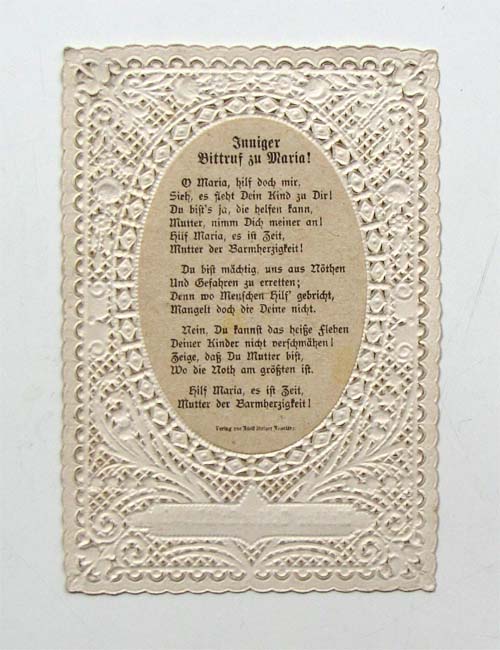 Inniger
Bittruf zu Maria!
O Maria, hilf doch mir,
Sieh, es fleht Dein Kind zu Dir!
Du bist's ja, die helfen kann,
Mutter, nimm Dich meiner an!
Hilf Maria, es ist Zeit,
Mutter der Barmherzigkeit!
Du bist mächtig, uns aus Nöthen
Und Gefahren zu erretten;
Denn wo Menschen Hilf' gebricht,
Mangelt doch die Deine nicht.
Nein, Du kannst das heiße Flehen
Deiner Kinder nicht verschmähen!
Zeige, daß Du Mutter bist,
Wo die Noth am größten ist.
Hilf Maria, es ist Zeit,
Mutter der Barmherzigkeit!
Verlag von Adolf